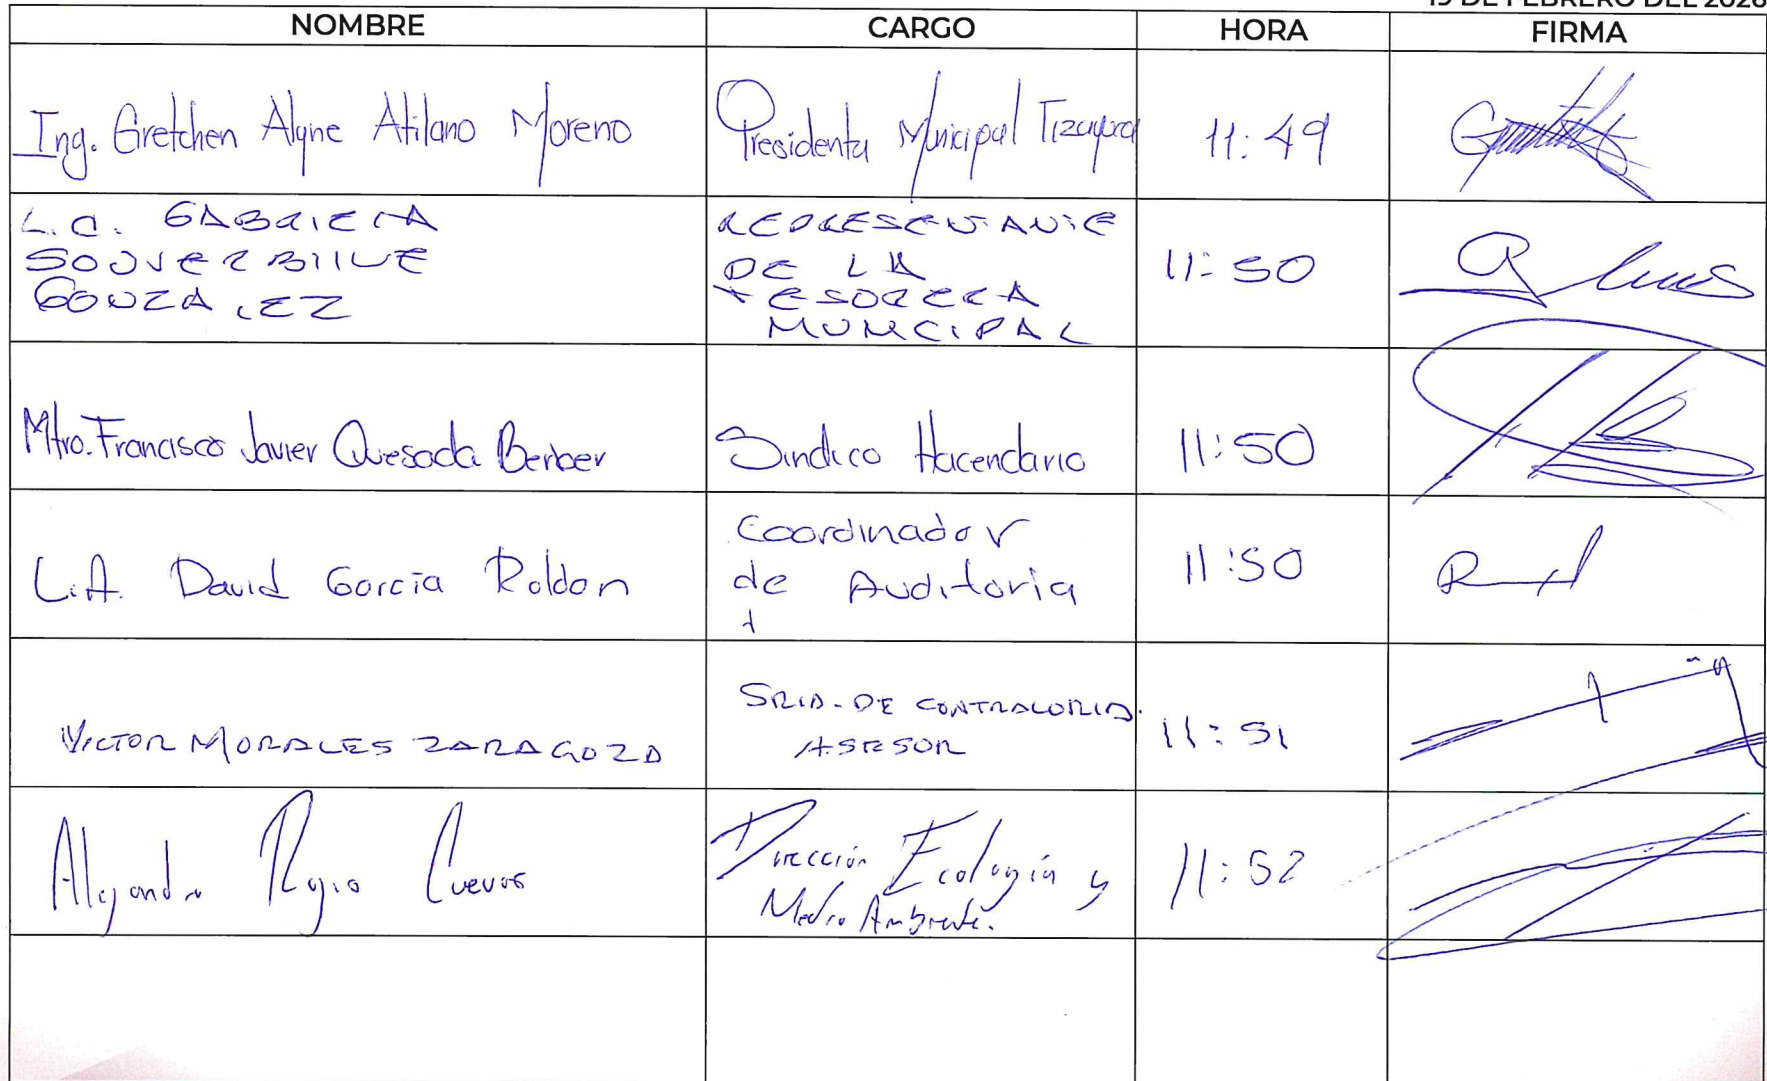 DE FEBRERO DEL 2026
NOMBRE CARGO HORA FIRMA
Ing. Gretchen Alyne Atilano Moreno Presidenta Municipal Tizayuca 11:49
L.C. GABRIELA
SOUVERBILLE
GONZALEZ
REPRESENTANTE
DE LA
TESORERA
MUNICIPAL
11:50
Mtro. Francisco Javier Quesada Berber Sindico Hacendario 11:50
L.A. David Garcia Roldan
Coordinador
de Auditoria
11:50
VICTOR MORALES ZARAGOZA
SRIA. DE CONTRALORIA.
ASESOR
11:51
Alejandro Rojo Cuevas
Dirección Ecología y
Medio Ambiente.
11:52